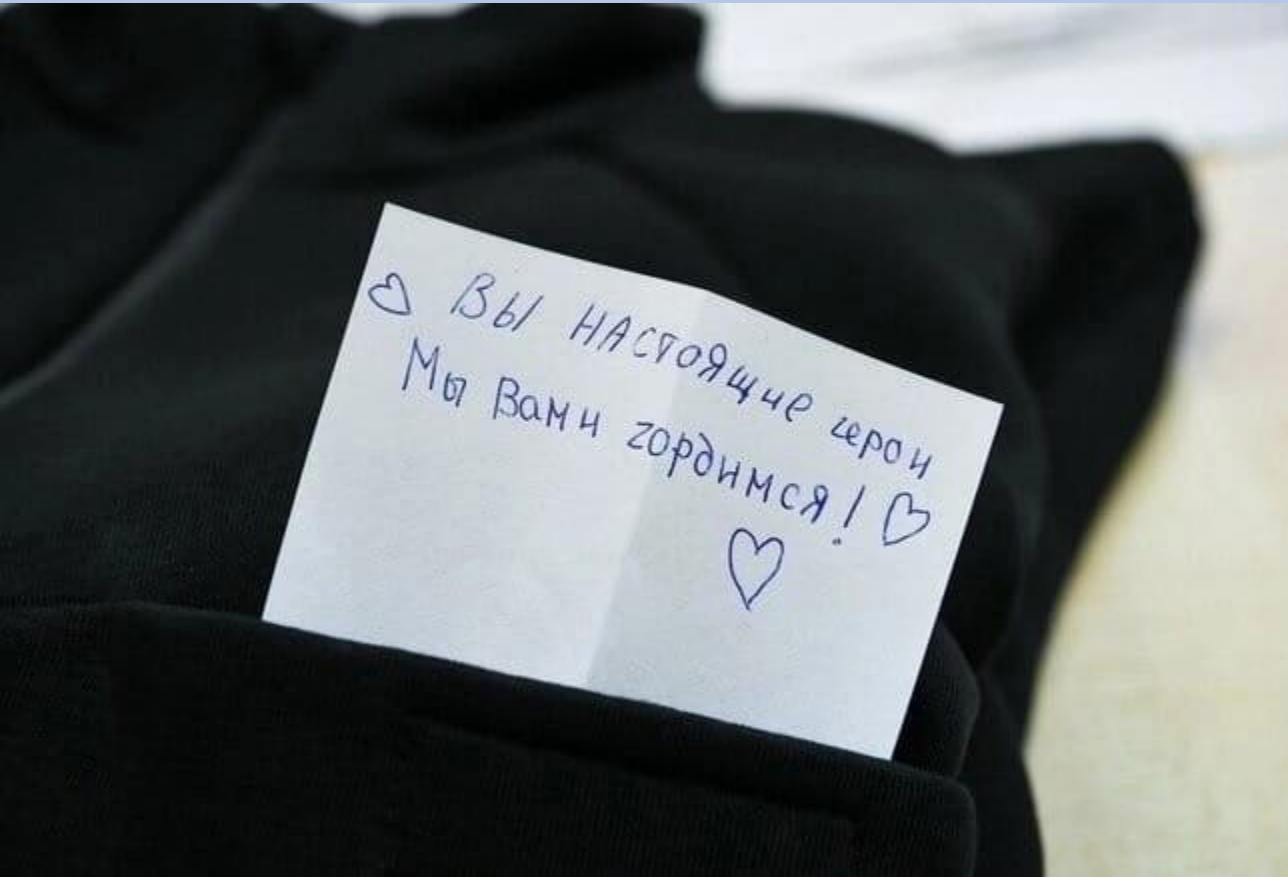 ВЫ НАСТОЯЩИЕ герои
Мы Вами гордимся!